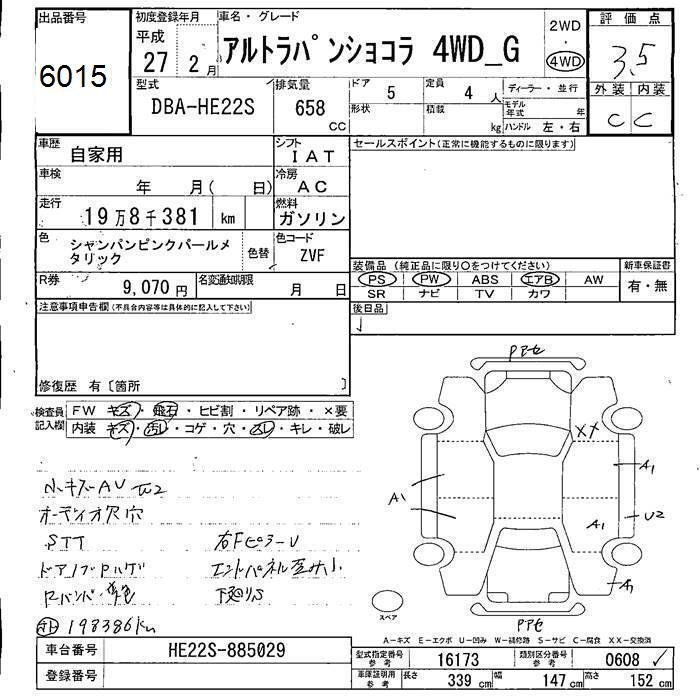 出品番号
6015
初度登録年月
平成
27 2 月
車名・グレード
アルトラパンショコラ 4WD_G
2WD
・
4WD
評価点
3.5
外装 内装
C C
型式
DBA-HE22S
排気量
658
CC
ドア
5
形状
定員
4 人
積載
kg
ディーラー・並行
モデル年式 年
ハンドル 左・右
車歴
自家用
シフト
IAT
車検
年 月( 日)
冷房
AC
走行
19万8千381 km
燃料
ガソリン
色
シャンパンピンクパールメ
タリック
色替
色コード
ZVF
R券
9,070 円
名変通知期限
月 日
セールスポイント(正常に機能するものに限ります)
装備品 (純正品に限り○をつけてください)
PS PW ABS エアB AW
SR ナビ TV カワ
新車保証書
有・無
後日品
注意事項申告欄(不具合内容等は具体的に記入して下さい)
修復歴 有〔箇所 〕
検査員
記入欄
FW キズ・飛石・ヒビ割・リペア跡・×要
内装 キズ・汚レ・コゲ・穴・スレ・キレ・破レ
小キズAU
オーディオ穴
STT
右FピラーU
下廻りS
198386km
Pアセ
XX
A1
A1
A1
U2
A1
Pアセ
スペア
A-キズ E-エクボ U-凹み W-補修跡 S-サビ C-腐食 XX-交換済
車台番号
HE22S-885029
登録番号
型式指定番号
参考
16173
類別区分番号
参考
0608
車庫証明用
参考
長さ
339 cm
幅
147 cm
高さ
152 cm